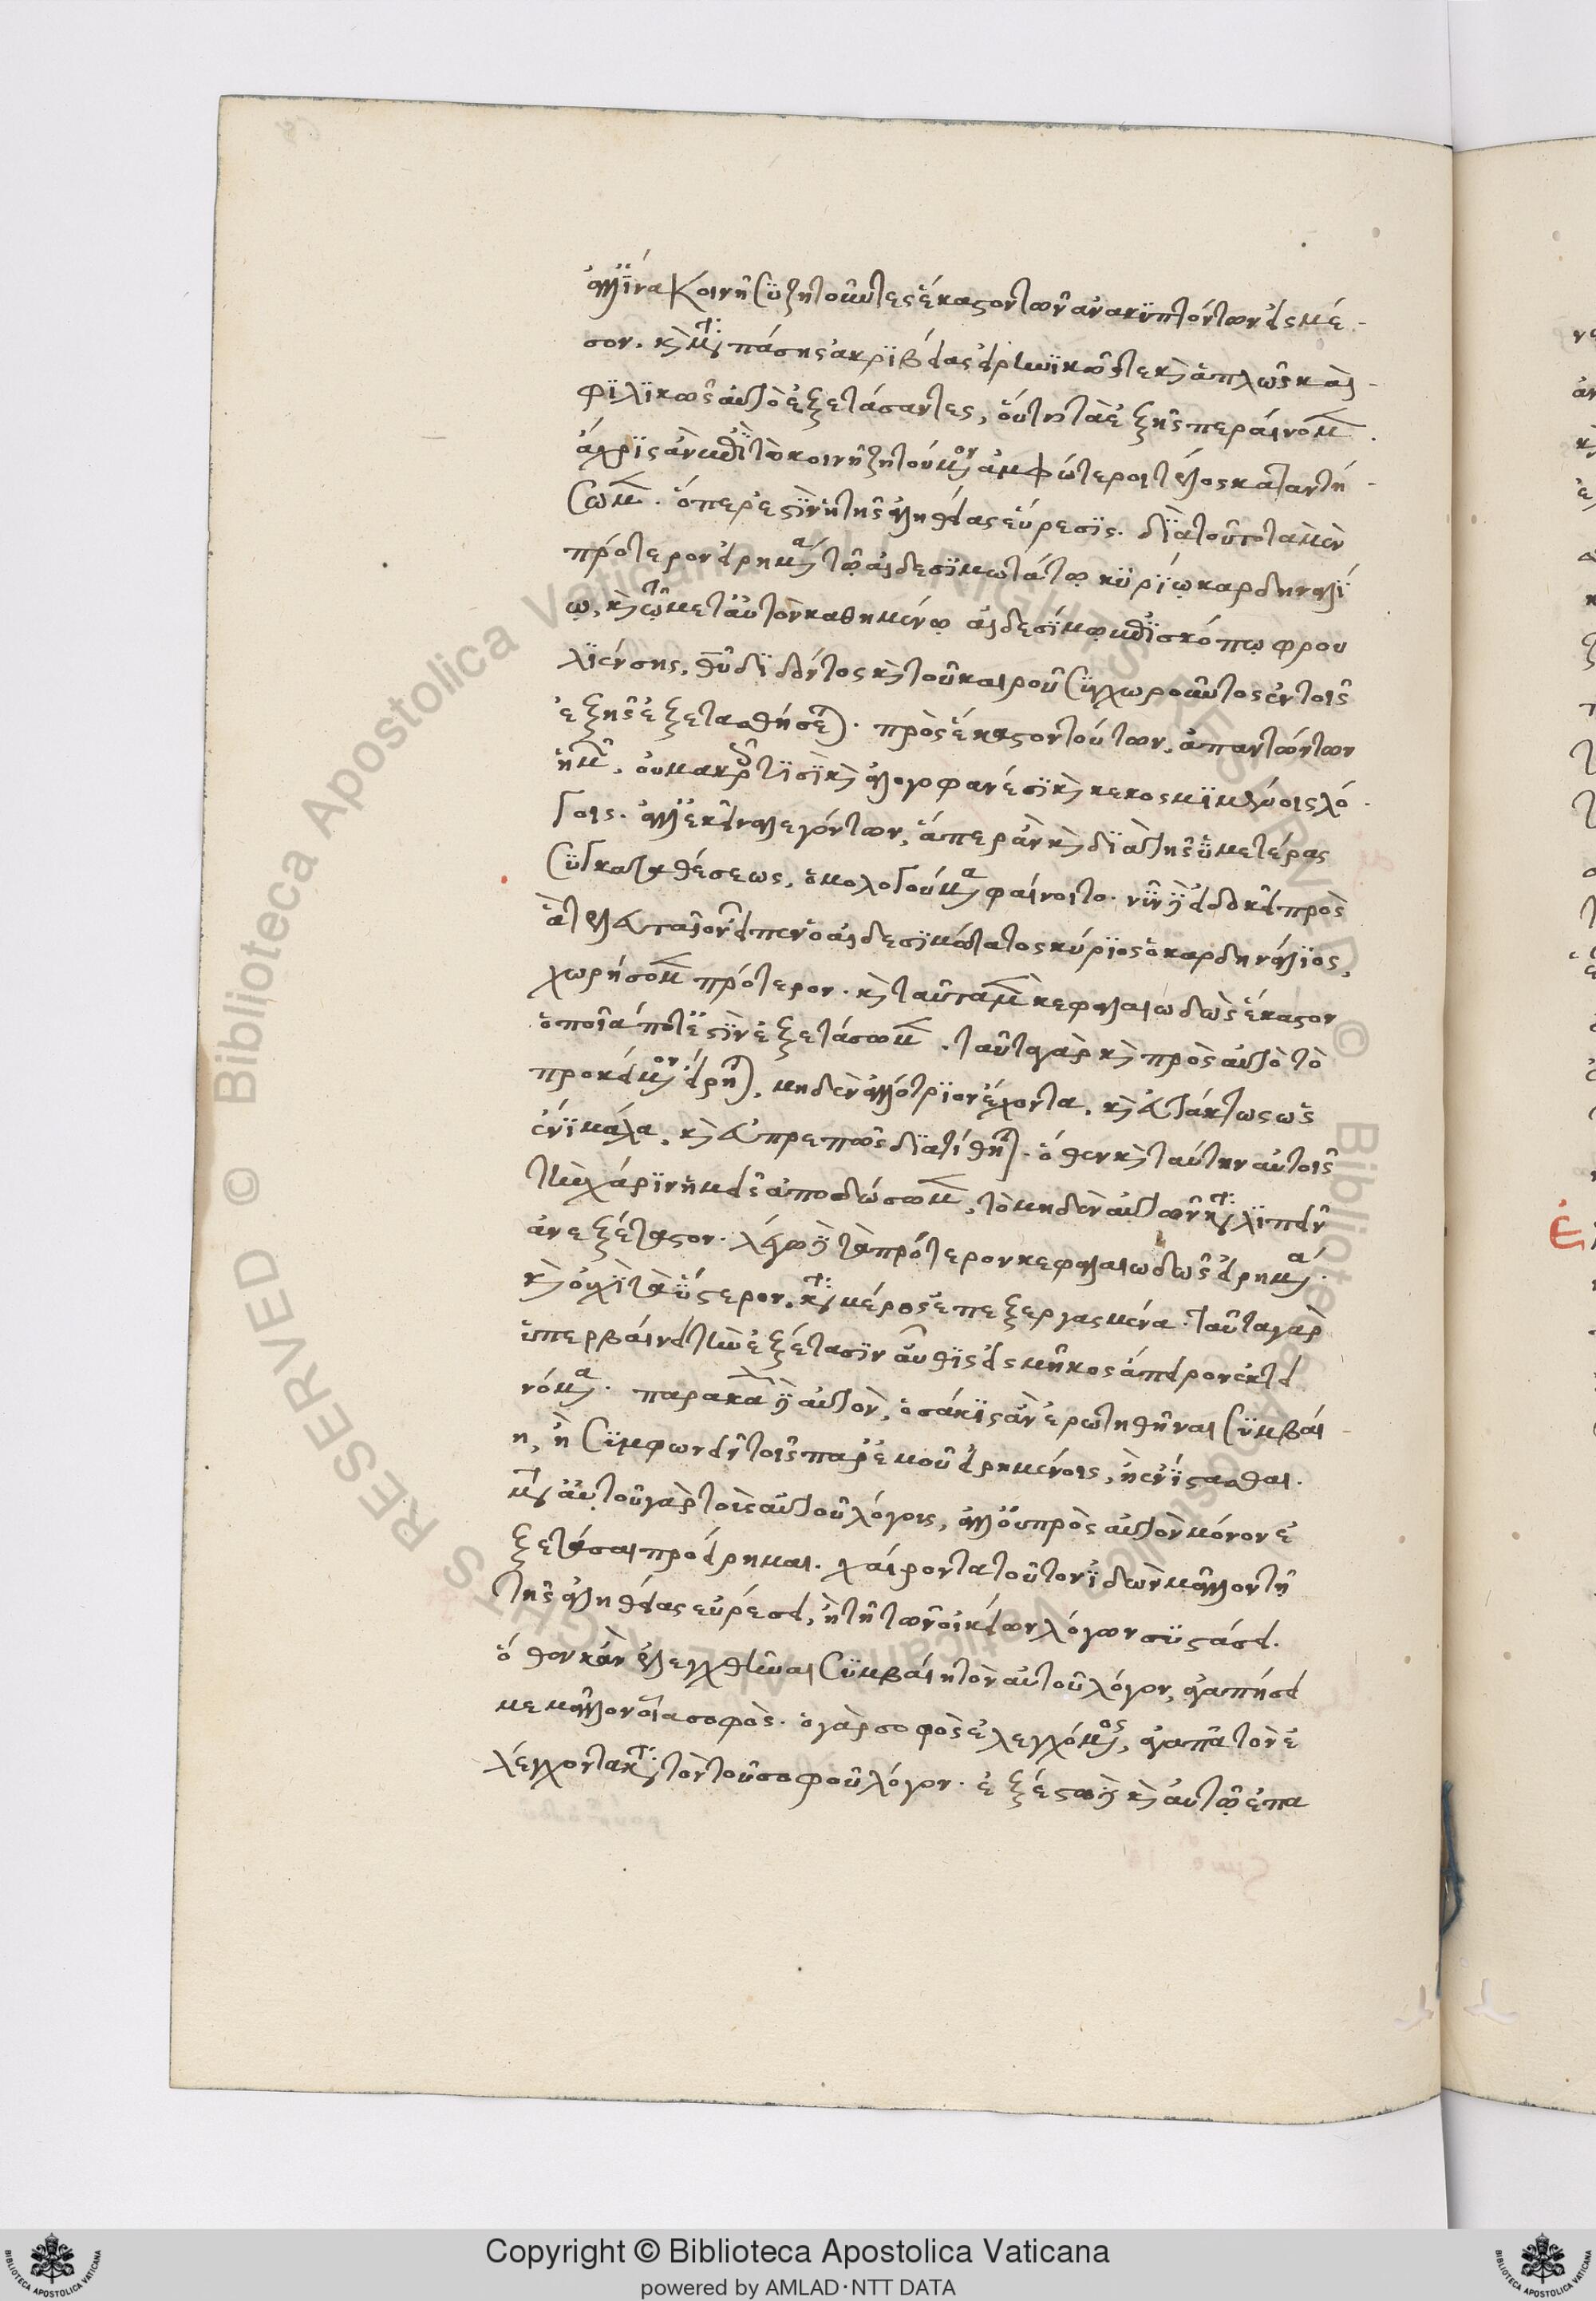 ἀλλ' ἵνα κοινῇ συζητοῦντες ἕκαστον τῶν ἀνακυπτόντων εἰς μέ-
σον. καὶ μετὰ πάσης ἀκριβείας εἰρηνικῶς τε καὶ ἁπλῶς καὶ
φιλικῶς αὐτὸ ἐξετάσαντες, οὕτω τὰ ἑξῆς περαίνομεν.
ἄχρις ἂν ἐπὶ τὸ κοινῇ ζητούμενον ἀμφότεροι τέλος καταντή-
σωμεν. ὅπερ ἐστὶν ἡ τῆς ἀληθείας εὕρεσις. διὰ τοῦτο τὰ μὲν
πρότερον εἰρημένα τῷ αἰδεσιμωτάτῳ κυρίῳ καρδηναλί
ῳ, καὶ τῷ μετ' αὐτὸν καθημένῳ αἰδεσίμῳ ἐπισκόπῳ φρου
λιένσης, θεοῦ διδόντος καὶ τοῦ καιροῦ συγχωροῦντος ἐν τοῖς
ἑξῆς ἐξετασθήσεται. πρὸς ἕκαστον τούτων, ἀπαντώντων
ἡμῶν, οὐ μακροῖς τισὶ καὶ ἀλογοφανέσι καὶ κεκοσμιμένοις λό-
γοις. ἀλλ' ἐκεῖνα λεγόντων, ἅπερ ἂν καὶ διὰ τῆς ὑμετέρας
συγκαταθέσεως, ὁμολογούμενα φαίνοιτο. νῦν δὲ εἰ δοκεῖ πρὸς
ἃ τελευταῖον εἶπεν ὁ αἰδεσιμώτατος κύριος ὁ καρδηνάλιος,
χωρήσομεν πρότερον. καὶ ταῦτα μὲν κεφαλαιωδῶς ἕκαστον
ὁποῖά ποτέ ἐστιν ἐξετάσωμεν. ταῦτα γὰρ καὶ πρὸς αὐτὸ τὸ
προκείμενον εἴρηται, μηδὲν ἀλλότριον ἔχοντα. καὶ εὐτάκτως ὡς
ἔνι μάλα, καὶ εὐπρεπῶς διατίθηται. ὅθεν καὶ ταύτην αὐτοῖς
τὴν χάριν ἡμεῖς ἀποδώσωμεν, τὸ μηδὲν αὐτῶν καταλιπεῖν
ἀνεξέταστον. λέγω δὲ τὰ πρότερον κεφαλαιωδῶς εἰρημένα.
καὶ οὐχὶ τὰ ὕστερον, κατὰ μέρος ἐπεξεργασμένα. ταῦτα γὰρ
ὑπερβαίνει τὴν ἐξέτασιν αὖθις εἰς μῆκος ἄπειρον ἐκτει
νόμενα. παρακαλῶ δὲ αὐτὸν, ὁσάκις ἂν ἐρωτηθῆναι συμβαί-
η, ἢ συμφωνεῖν τοῖς παρ' ἐμοῦ εἰρημένοις, ἢ ἐνίστασθαι.
μετὰ αὐτοῦ γὰρ τοῖς αὐτοῦ λόγοις, ἀλλ' οὐ πρὸς αὐτὸν μόνον ἐ
ξετάσαι προείρημαι. χαίροντα τοῦτον ἰδὼν μᾶλλον τῇ
τῆς ἀληθείας εὑρέσει, ἢ τῇ τῶν οἰκείων λόγων συστάσει.
ὅθεν κἂν ἐλεγχθῆναι συμβαίη τὸν αὐτοῦ λόγον, ἀγαπήσει
με μᾶλλον οἷα σοφὸς. ὁ γὰρ σοφὸς ἐλεγχόμενος, ἀγαπᾷ τὸν ἐ
λέγχοντα κατὰ τὸν τοῦ σοφοῦ λόγον. ἐξέστω δὲ καὶ αὐτῷ ἐπα